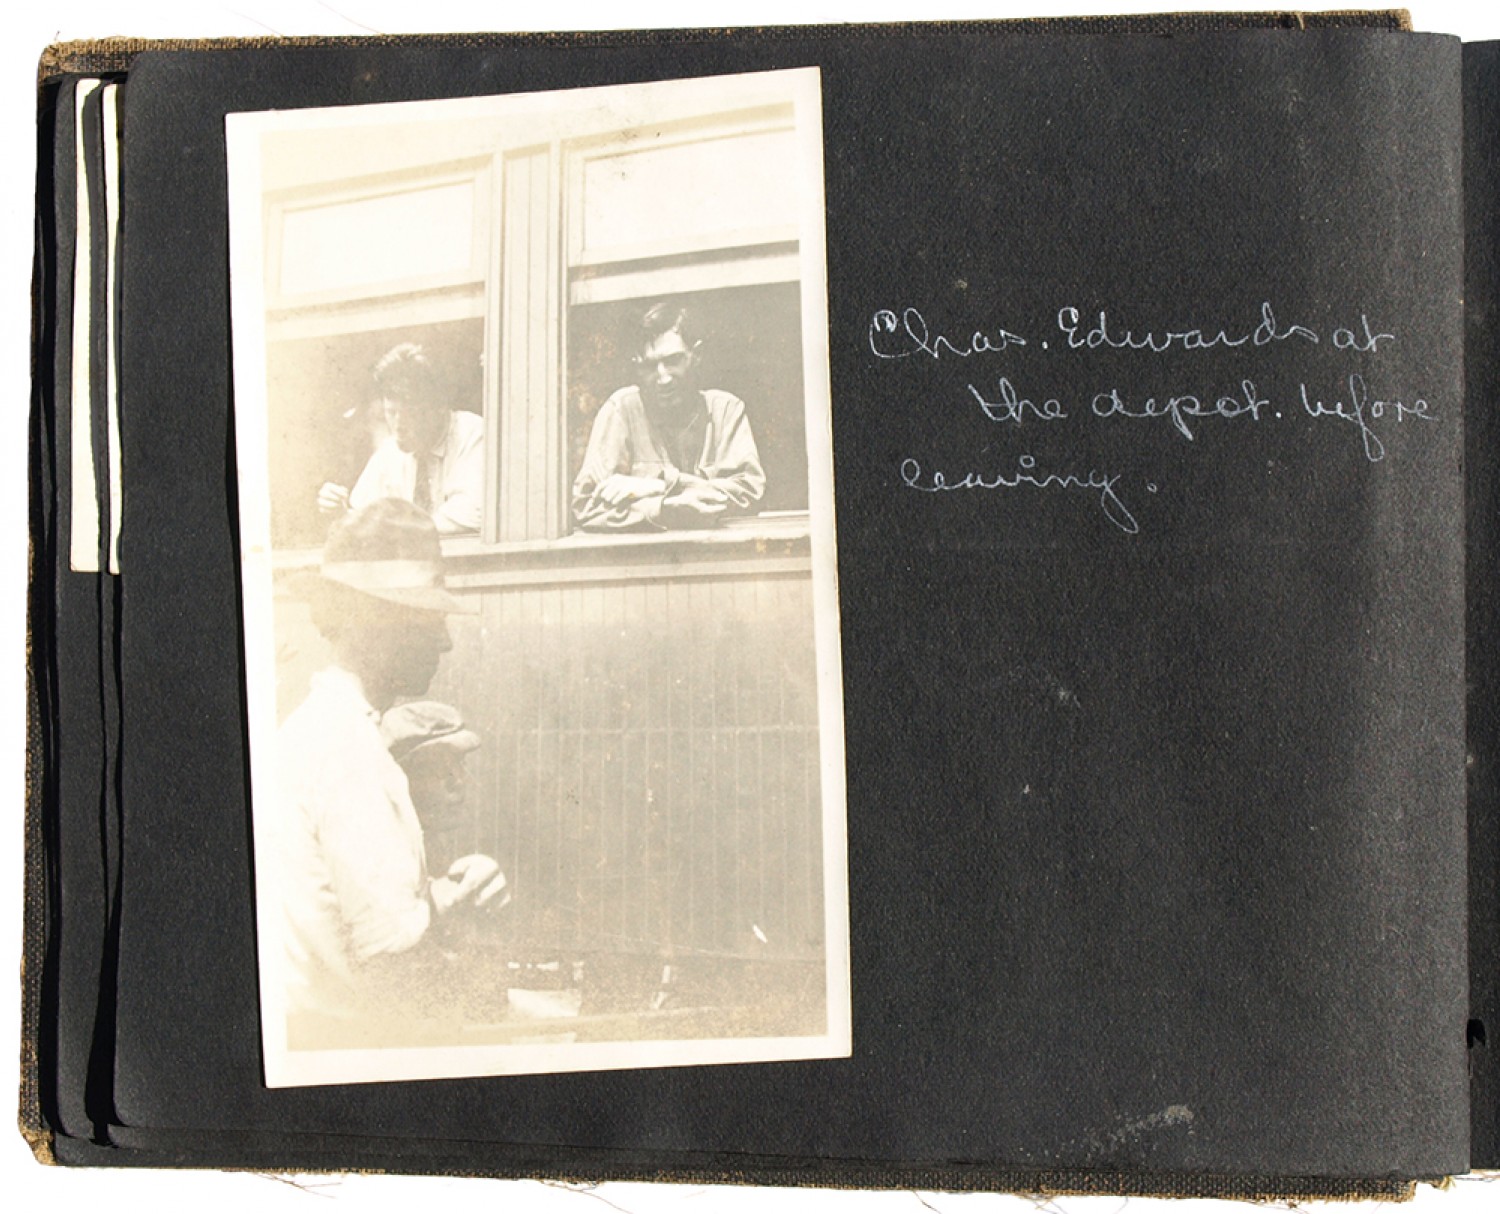 Chas. Edwards at
the depot. before
leaving.